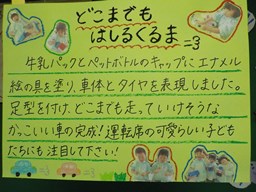 どこまでも
はしるくるま
牛乳パックとペットボトルのキャップにエナメル
絵の具を塗り、車体とタイヤを表現しました。
足型を付け、どこまでも走っていけそうな
かっこいい車の完成！運転席の可愛らしい子ども
たちにも注目して下さい！